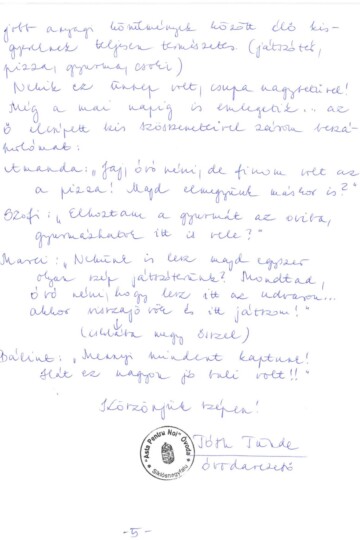 jobb anyagi körülmények között élő kis-
gyereknek teljesen természetes. (játszótér,
pizza, gyurma, csoki)
Nekik ez ünnep volt, csupa nagybetűvel!
Még a mai napig is emlegetik... az
ő kis szösszeneteivel zárom beszá-
molómat:
Amanda: „Jaj, óvó néni, de finom volt az
a pizza! Majd elmegyünk máskor is?"
Szofi: „Elhoztam a gyurmát az oviba,
gyurmázhatok itt is vele?"
Marci: „Nekünk is lesz majd egyszer
olyan szép játszóterünk? Mondtad,
óvó néni, hogy lesz itt az udvaron...
akkor visszajövök és itt játszom!"
(iskolába megy ősszel)
Bálint: „Mennyi mindent kaptunk!
Hát ez nagyon jó buli volt!!"
Köszönjük szépen!
"Asta Pentru Noi" Óvoda
Tóth Tünde
óvodavezető
-5-